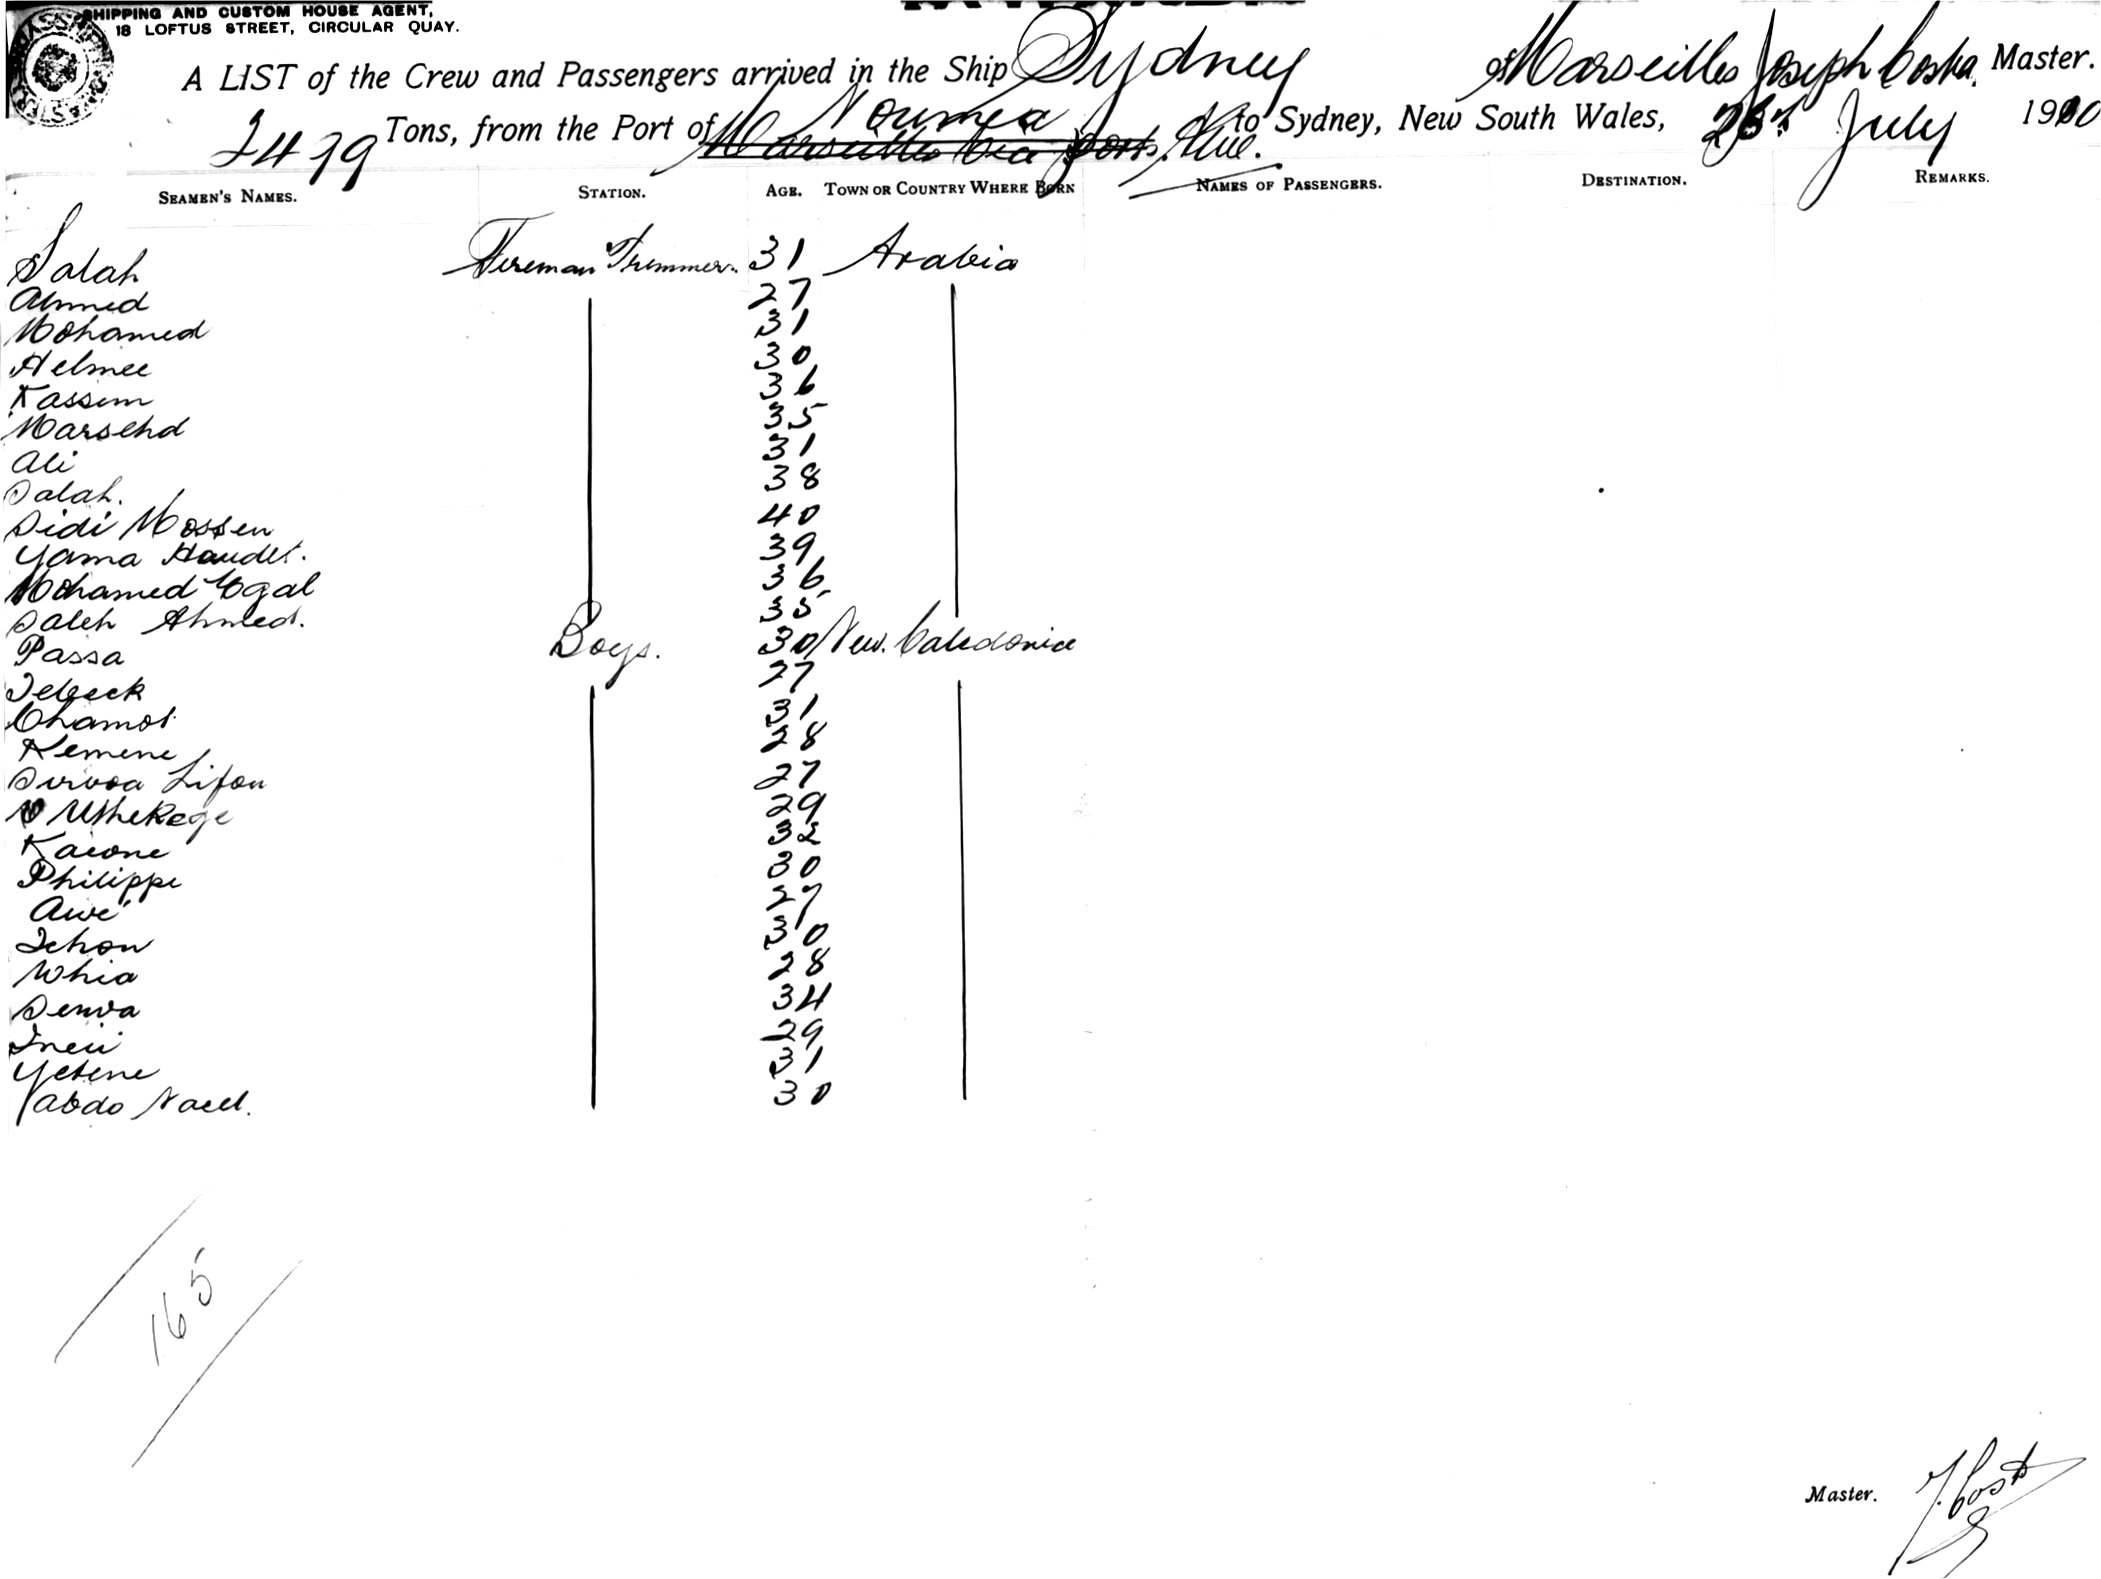 SHIPPING AND CUSTOM HOUSE AGENT,
18 LOFTUS STREET, CIRCULAR QUAY.
A LIST of the Crew and Passengers arrived in the Ship Sydney of Marseilles Joseph Costa, Master.
2479 Tons, from the Port of Noumea Marseilles via ports to Sydney, New South Wales, July 1910
SEAMEN'S NAMES. STATION. AGE. TOWN OR COUNTRY WHERE BORN NAMES OF PASSENGERS. DESTINATION. REMARKS.
Salah Fireman Trimmer 31 Arabia
Ahmed 27
Mohamed 31
Helmee 30
Kassem 36
Marsehd 35
Ali 31
Salah. 38
Sidi Mossen 40
Yama Haudet. 39
Mohamed Egal 36
Saleh Ahmed. 35
Passa Boys. 30 New. Caledonia
Tebeek 27
Chamot 31
Kemene 28
Survoa Lifou 27
Uthekege 29
Kaione 32
Philippe 30
Awe 27
Tchon 30
Whia 28
Senva 34
Ineii 29
Yetene 31
Abdo Nacel. 30
165
Master. J. Costa